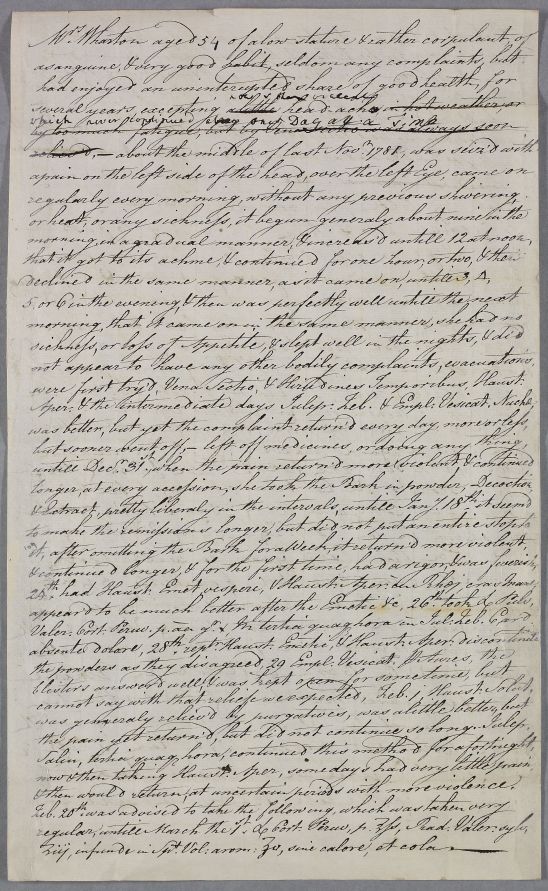 Mrs. Wharton aged 54 of a low stature & rather corpulant, of
a sanguine, & very good habit, seldom any complaints, but
had enjoyed an uninterrupted share of good health, for
several years, excepting head-achs, in hot weather, or
which never continued only a Day at a Time
by too much fatigue, but by always soon
reliev'd, — about the middle of last Novr. 1788, was seiz'd with
a pain on the left side of the head, over the left Eye, came on
regularly every morning, without any previous shivering
or heat, or any sickness, it begun generaly about nine in the
morning, in a gradual manner, & increas'd untill 12 at noon,
that it got to its achme, & continued for one hour, or two, & then
declined in the same manner, as it came on, untill 3, 4,
5, or 6 in the evening, & then was perfectly well untill the next
morning, that it came on in the same manner, she had no
sickness, or loss of Appetite, & slept well in the nights, & did
not appear to have any other bodily complaints, evacuations
were first try'd, Vena Sectio, & Hirudines Temporibus, Haust:
Aper: & the intermediate days Julep: Feb. & Empl: Vesicat. Nuchæ,
was better, but yet the complaint return'd every day more or less,
but sooner went off, — left off medicines, or doing any thing
untill Decr. 31st, when the pain return'd more violent & continued
longer, at every accession, she took the Bark in powder, Decoction
& Extract, pretty liberaly in the intervals, untill Jany. 18th it seem'd
to make the remissions longer, but did not put an entire stop to
it, after omitting the Bark for a Week, it return'd more violent
& continued longer, & for the first time, had a rigor, & was feverish,
25th. had Haust. Emet. vesperi, & Haust. Aper: cu Rhæo, cras mane,
appear'd to be much better after the Emetic &c, 26th took Rad:
Valer: Cort. Peruv. p. æq. tertia quaq hora in Jul: Feb.
absente dolore, 28th rept. Haust. Emetic, & Haust. Aper. discontinued
the powders as they disagreed, 29 Empl. Vesicat. the
blisters answer'd well & was kept open for some time, but
cannot say with that relief we expected, Feb. 1, Haust. Solut.
was generaly reliev'd by purgatives, was a little better, but
the pain yet return'd, but did not continue so long. Julep.
Salin, tertia quaq hora, continued this method for a fortnight,
now & then taking Haust. Aper, some days had very little pain
& then would return, at uncertain periods with more violence.
Feb. 20th was advised to take the following, which was taken very
regular, untill March the 1st. Cort. Peruv. p. ℥ss, Rad: Valer: sylv.
ʒiij, infunde in Spt. Vol: arom: sine calore, et cola